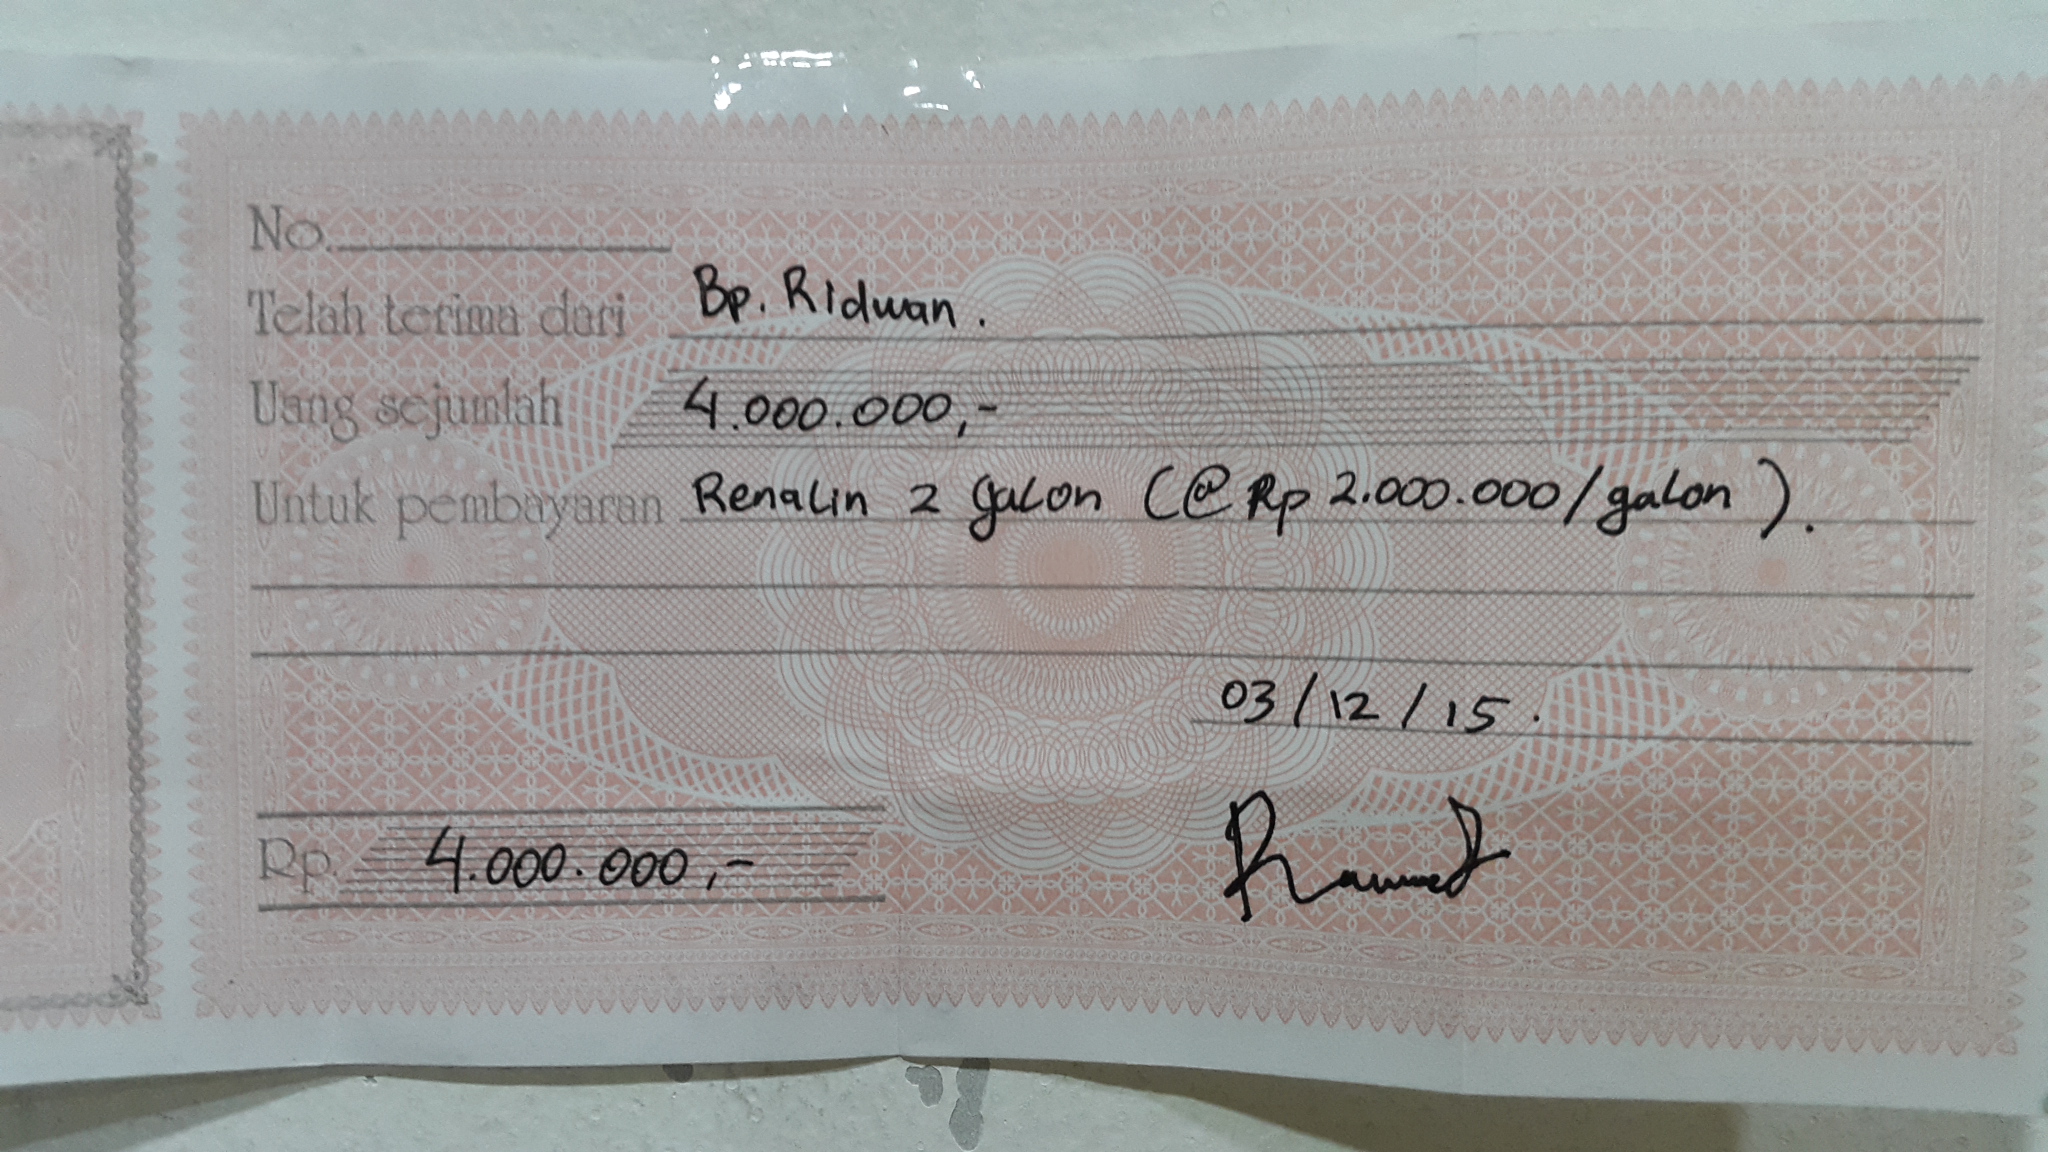 No.
Telah terima dari Bp. Ridwan.
Uang sejumlah 4.000.000,-
Untuk pembayaran Renalin 2 galon (@ Rp 2.000.000/galon).
03/12/15.
Rp. 4.000.000,-